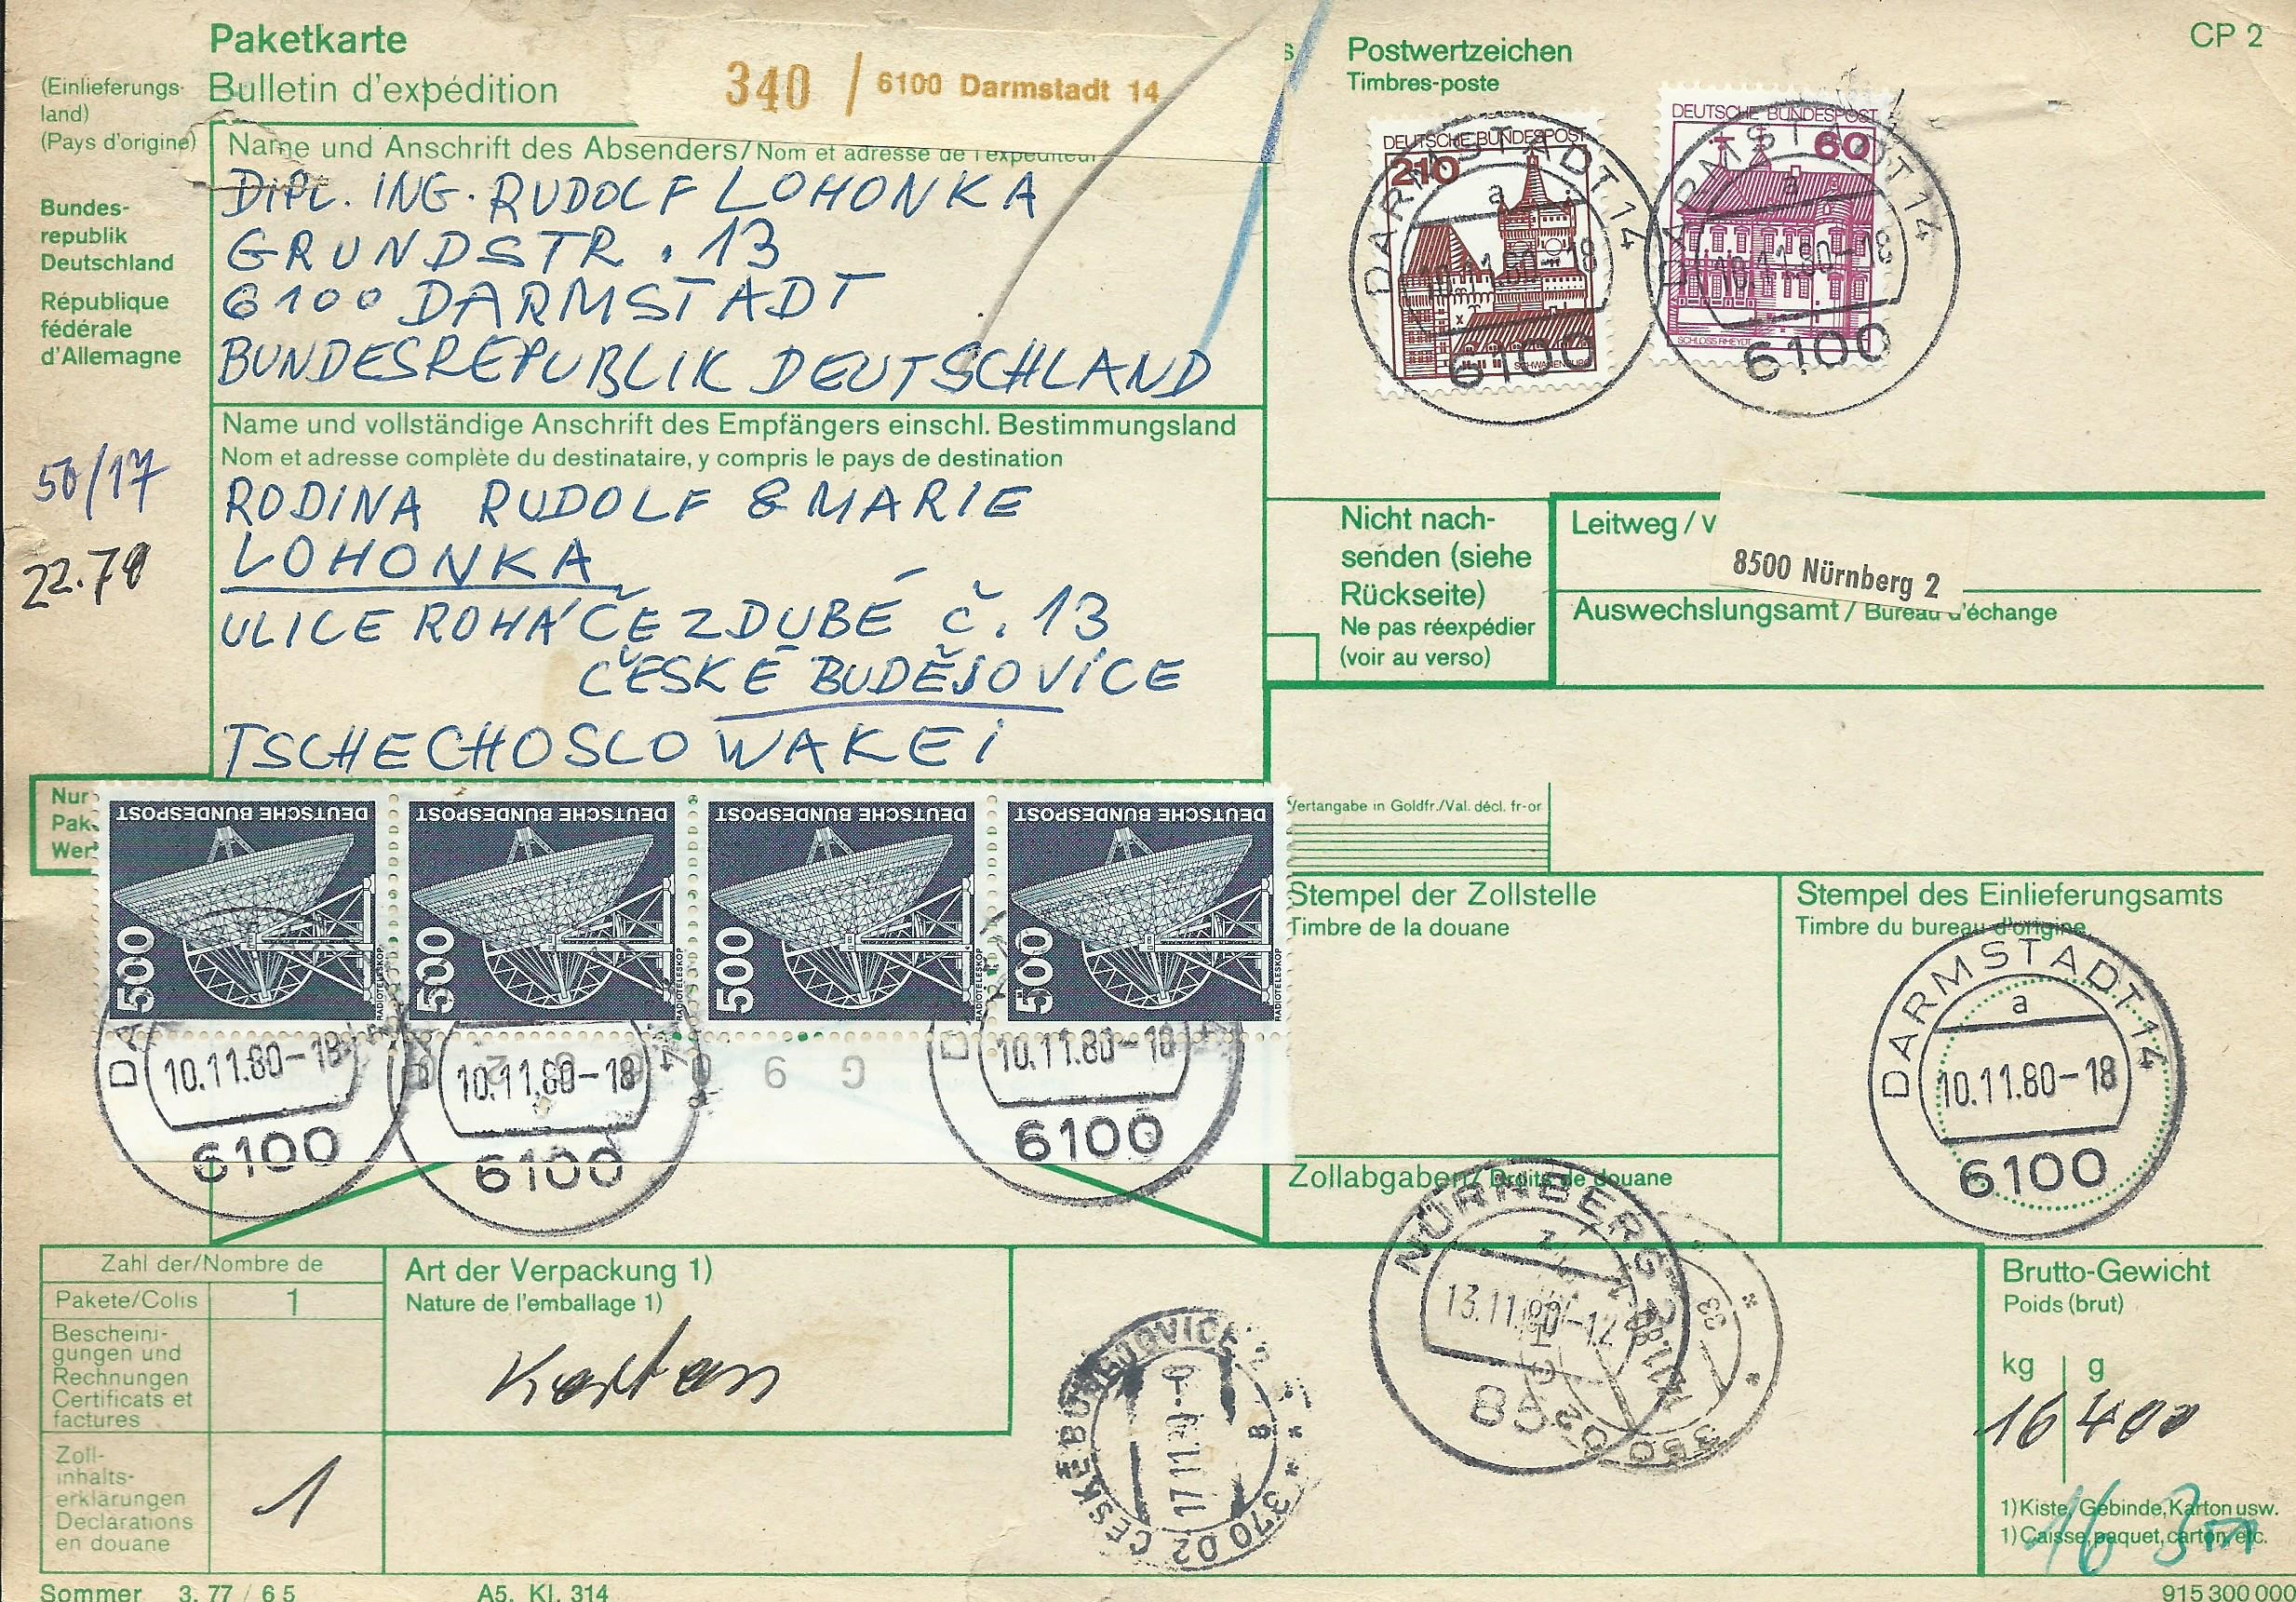 Paketkarte
Bulletin d'expédition
340 / 6100 Darmstadt 14
Postwertzeichen
Timbres-poste
CP 2
(Einlieferungs-
land)
(Pays d'origine)
Bundes-
republik
Deutschland
République
fédérale
d'Allemagne
Name und Anschrift des Absenders/Nom et adresse de l'expéditeur
DIPL. ING. RUDOLF LOHONKA
GRUNDSTR. 13
6100 DARMSTADT
BUNDESREPUBLIK DEUTSCHLAND
DEUTSCHE BUNDESPOST
210
SCHWANENBURG
DEUTSCHE BUNDESPOST
60
SCHLOSS RHEYDT
DARMSTADT 14
a
10.11.80-18
6100
DARMSTADT 14
a
10.11.80-18
6100
Name und vollständige Anschrift des Empfängers einschl. Bestimmungsland
Nom et adresse complète du destinataire, y compris le pays de destination
50/17
RODINA RUDOLF & MARIE
LOHONKA
ULICE ROHÁČE Z DUBÉ Č. 13
ČESKÉ BUDĚJOVICE
TSCHECHOSLOWAKEI
Nicht nach-
senden (siehe
Rückseite)
Ne pas réexpédier
(voir au verso)
Leitweg / V
8500 Nürnberg 2
Auswechslungsamt / Bureau d'échange
Nur
Pak
Wer
DEUTSCHE BUNDESPOST
500
RADIOTELESKOP
DEUTSCHE BUNDESPOST
500
RADIOTELESKOP
DEUTSCHE BUNDESPOST
500
RADIOTELESKOP
DEUTSCHE BUNDESPOST
500
RADIOTELESKOP
10.11.80-18
6100
10.11.80-18
6100
10.11.80-18
6100
Wertangabe in Goldfr./Val. décl. fr-or
Stempel der Zollstelle
Timbre de la douane
Stempel des Einlieferungsamts
Timbre du bureau d'origine
DARMSTADT 14
a
10.11.80-18
6100
Zollabgaben/Droits de douane
NÜRNBERG 2
13.11.80-12
85
Zahl der/Nombre de
Pakete/Colis 1
Bescheini-
gungen und
Rechnungen
Certificats et
factures
Zoll-
inhalts-
erklärungen
Déclarations
en douane
1
Art der Verpackung 1)
Nature de l'emballage 1)
Karton
ČESKÉ BUDĚJOVICE 2
17.11.80
370 02
Brutto-Gewicht
Poids (brut)
kg g
16 400
1) Kiste, Gebinde, Karton usw.
1) Caisse, paquet, carton, etc.
Sommer 3. 77 / 6 5
A5, Kl. 314
915 300 000